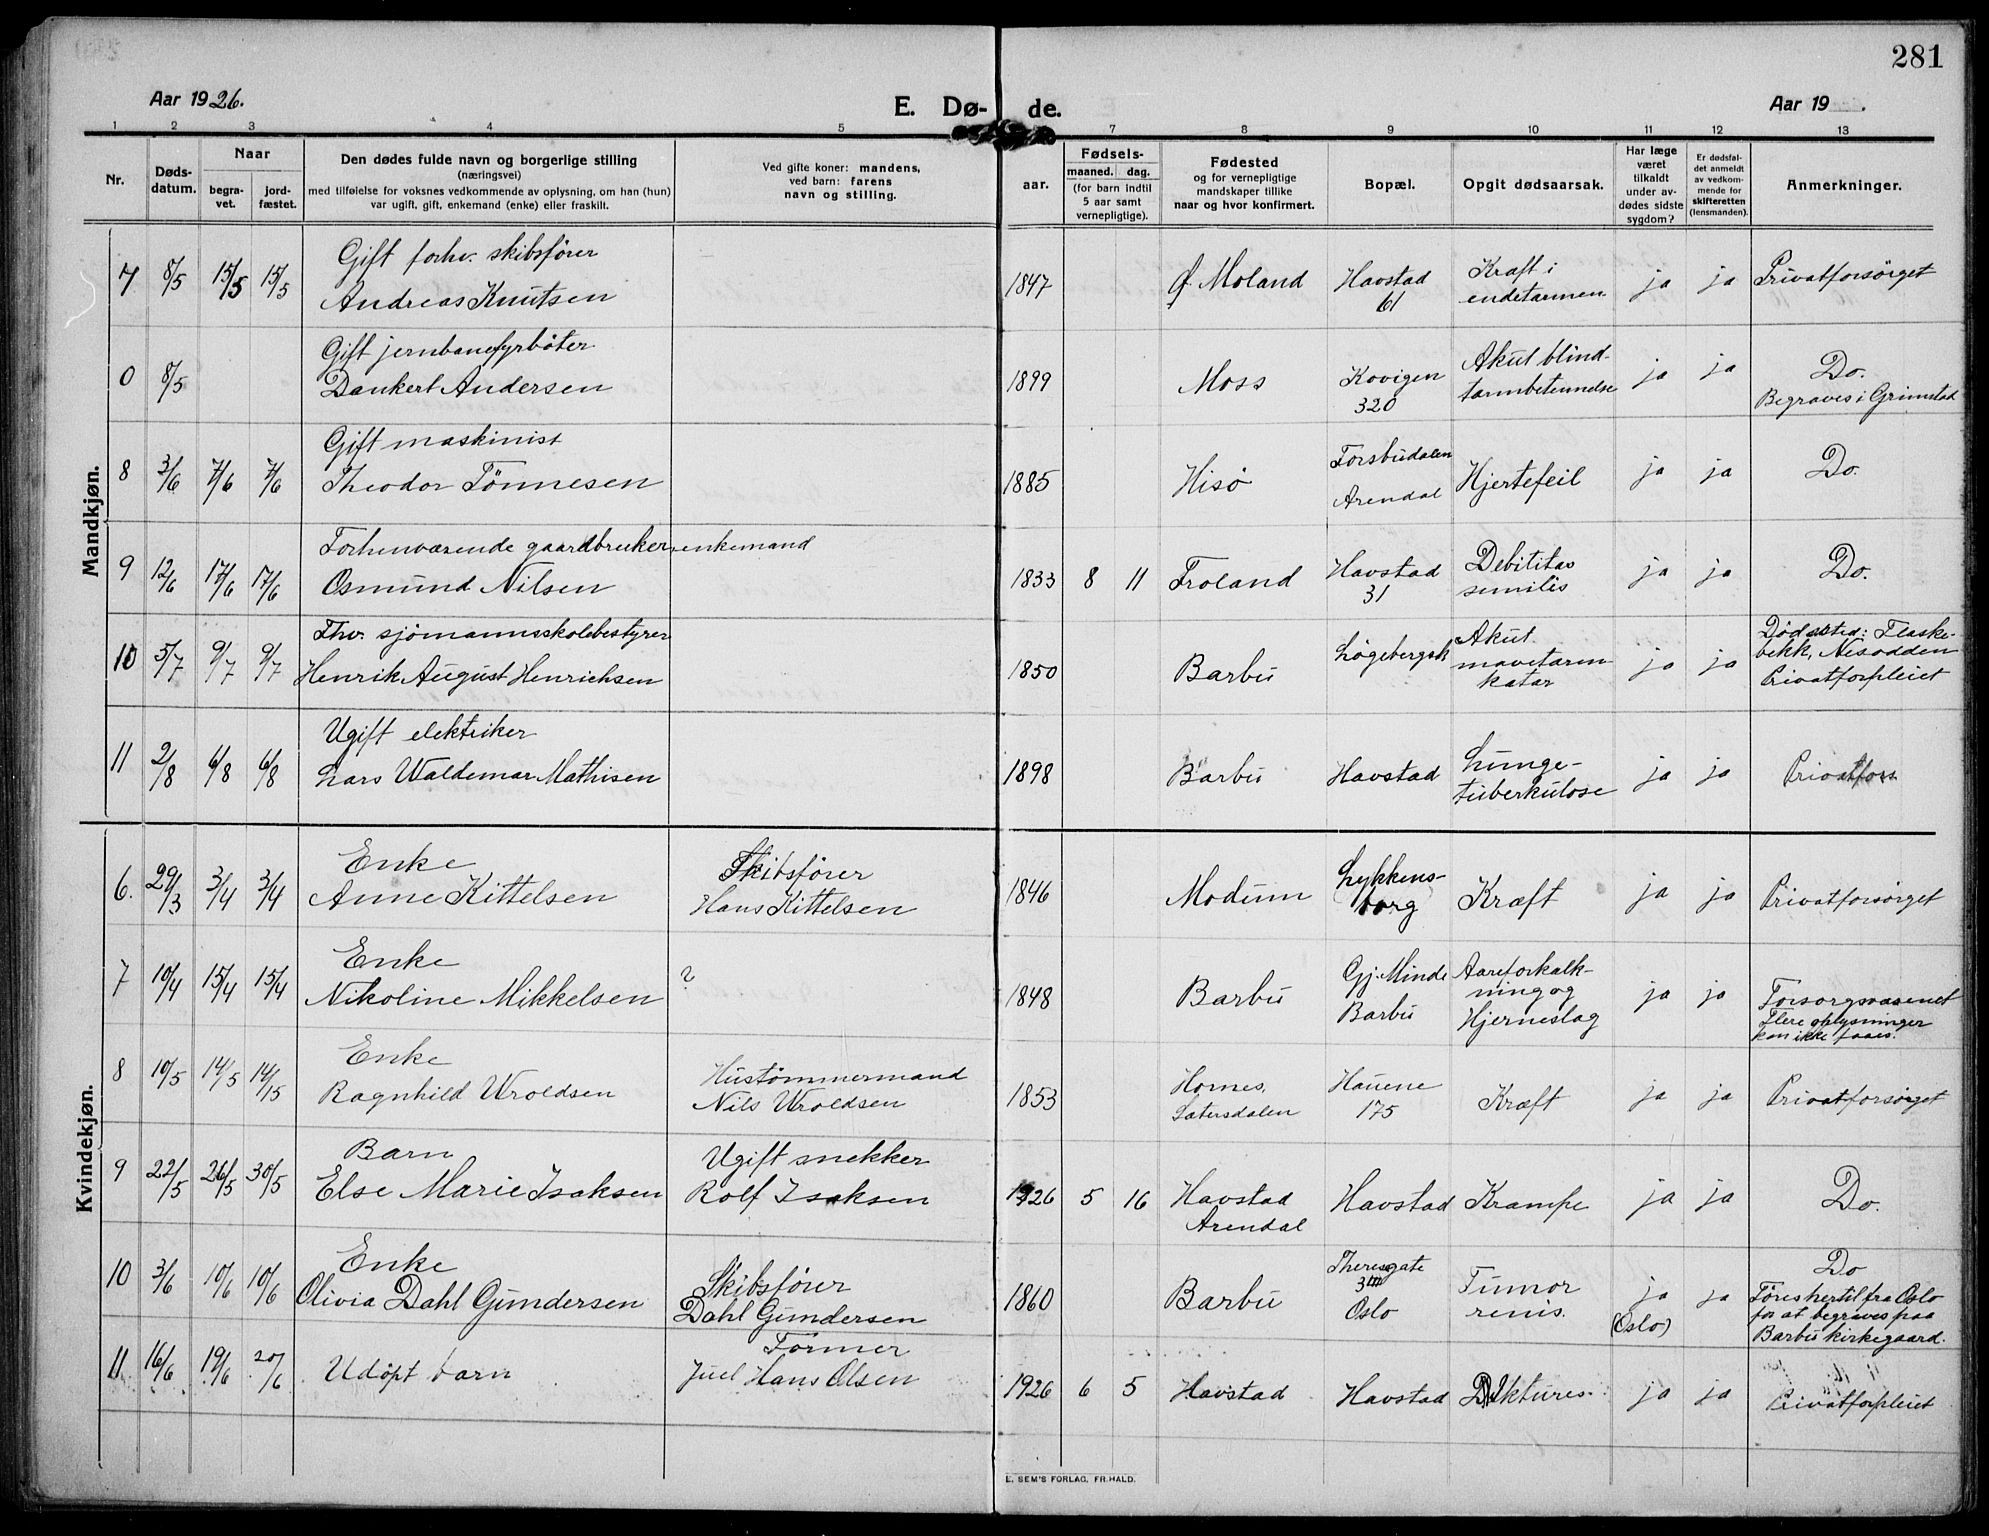 281
Aar 1926.
E. Dø- de.
Aar 19 .
1 2 3 4 5 7 8 9 10 11 12 13
Nr.
Døds-
datum.
Naar
begra-
vet.
jord-
fæstet.
Den dødes fulde navn og borgerlige stilling
(næringsvei)
med tilføielse for voksnes vedkommende av oplysning, om han (hun)
var ugift, gift, enkemand (enke) eller fraskilt.
Ved gifte koner: mandens,
ved barn: farens
navn og stilling.
aar.
Fødsels-
maaned. dag.
(for barn indtil
5 aar samt
vernepligtige).
Fødested
og for vernepligtige
mandskaper tillike
naar og hvor konfirmert.
Bopæl.
Opgit dødsaarsak.
Har læge
været
tilkaldt
under av-
dødes sidste
sygdom?
Er dødsfal-
det anmeldt
av vedkom-
mende for
skifteretten
(lensmanden).
Anmerkninger.
Mandkjøn.
7 8/5 15/5 15/5
Gift forhv. skibsfører
Andreas Knutsen
1847
Ø. Moland
Havstad
61
Kræft i
endetarmen
ja ja
Privatforsørget
0 8/5
Gift jernbanefyrbøter
Dankert Andersen
1899
Moss
Kovigen
320
Akut blind-
tarmbetendelse
ja ja
Do.
Begraves i Grimstad
8 3/6 7/6 7/6
Gift maskinist
Theodor Tønnesen
1885
Hisø
Forsbudalen
Arendal
Hjertefeil
ja ja
Do.
9 12/6 17/6 17/6
Forhenværende gaardbruker, enkemand
Osmund Nilsen
1833 8 11
Froland
Havstad
31
Debilitas
senilis
ja ja
Do.
10 5/7 9/7 9/7
Fhv. sjømannsskolebestyrer
Henrik August Henrichsen
1850
Barbu
Løgebergsk
Akut
mavetarm
katar
ja ja
Dødssted: Flaske-
bekk, Nesodden
Privatforpleiet
11 2/8 6/8 6/8
Ugift elektriker
Lars Waldemar Mathisen
1898
Barbu
Havstad
Lunge-
tuberkulose
ja ja
Privatfors
Kvindekjøn.
6. 29/3 3/4 3/4
Enke
Anne Kittelsen
Skibsfører
Hans Kittelsen
1846
Modum
Lykkens-
borg
Kræft
ja ja
Privatforsørget
7 10/4 15/4 15/4
Enke
Nikoline Mikkelsen
?
1848
Barbu
Gj. Minde
Barbu
Aareforkalk-
ning og
Hjerneslag
ja ja
Forsorgsvæsenet
Flere oplysninger
kan ikke faaes.
8 10/5 14/5 14/15
Enke
Ragnhild Uroldsen
Hustømmermand
Nils Uroldsen
1853
Hornes,
Sætersdalen
Hauene
175
Kræft
ja ja
Privatforsørget
9 22/5 26/5 30/5
Barn
Else Marie Isaksen
Ugift snekker
Rolf Isaksen
1926 5 16
Havstad
Arendal
Havstad
Krampe
ja ja
Do.
10 3/6 10/6 10/6
Enke
Olivia Dahl Gundersen
Skibsfører
Dahl Gundersen
1860
Barbu
Theresgate
Oslo
Tumor
renis.
ja
(Oslo)
ja
Do
Føres hertil fra Oslo
for at begraves paa
Barbu kirkegaard.
11 16/6 19/6 20/6
Udøpt barn
Former
Juel Hans Olsen
1926 6 5
Havstad
Havstad
ja ja
Privatforpleiet
E. SEM'S FORLAG, FR.HALD.